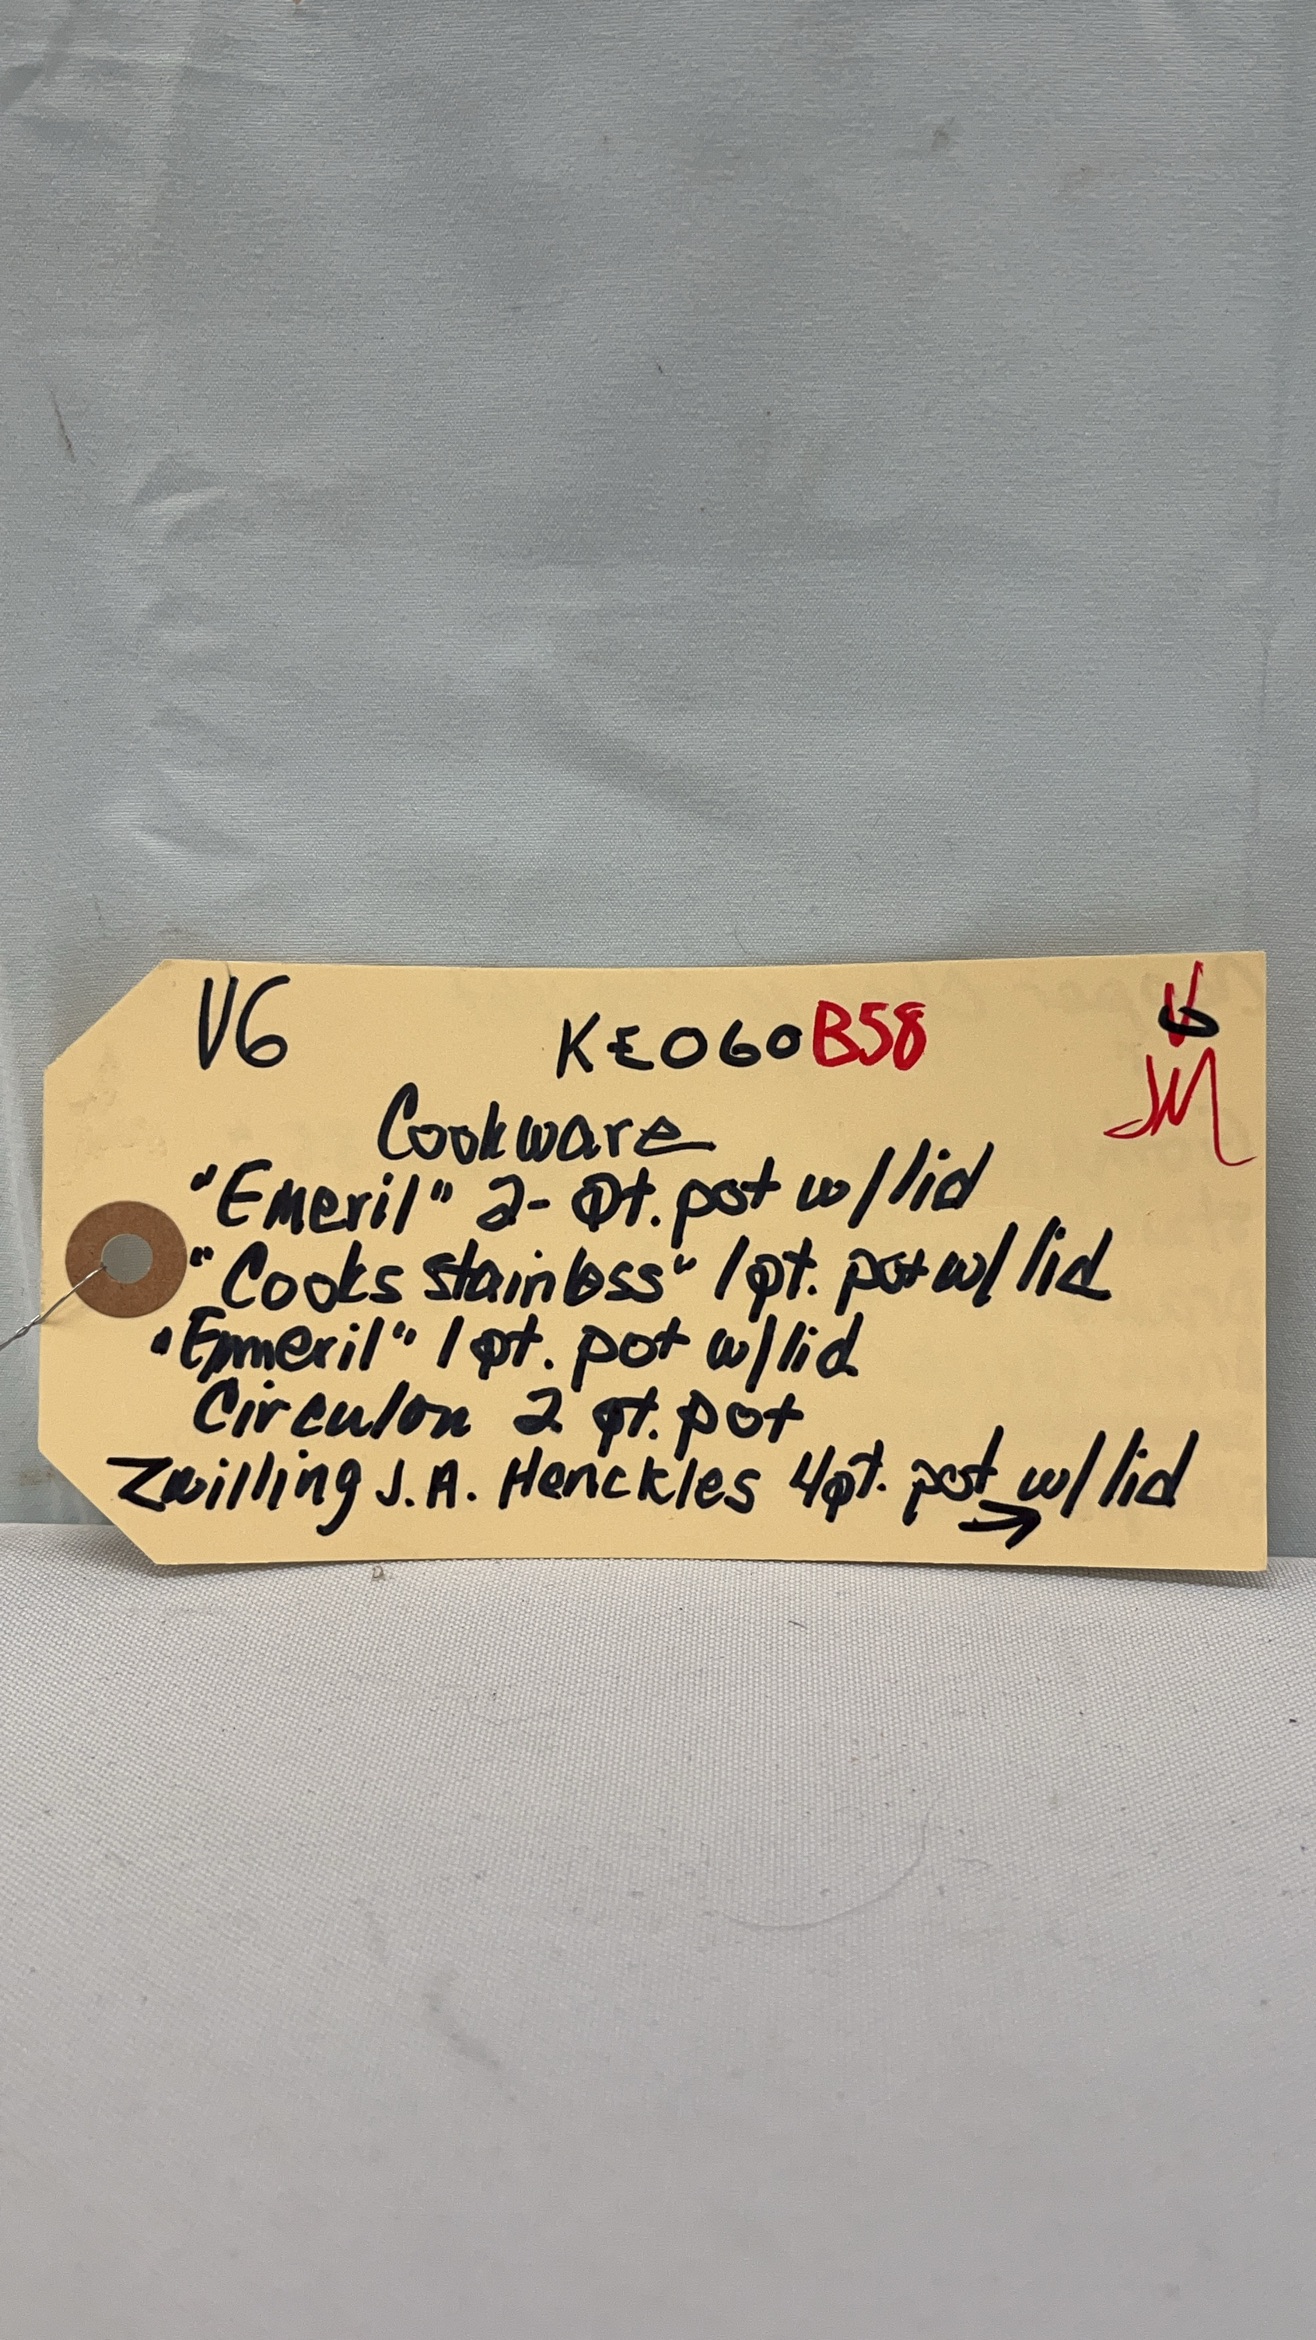 V6
KE060B58
JM
Cookware
"Emeril" 2- Qt. pot w/lid
"Cooks stainless" 1 qt. pot w/ lid
"Emeril" 1 qt. pot w/lid
Circulon 2 qt. pot
Zwilling J.A. Henckles 4qt. pot w/ lid
→